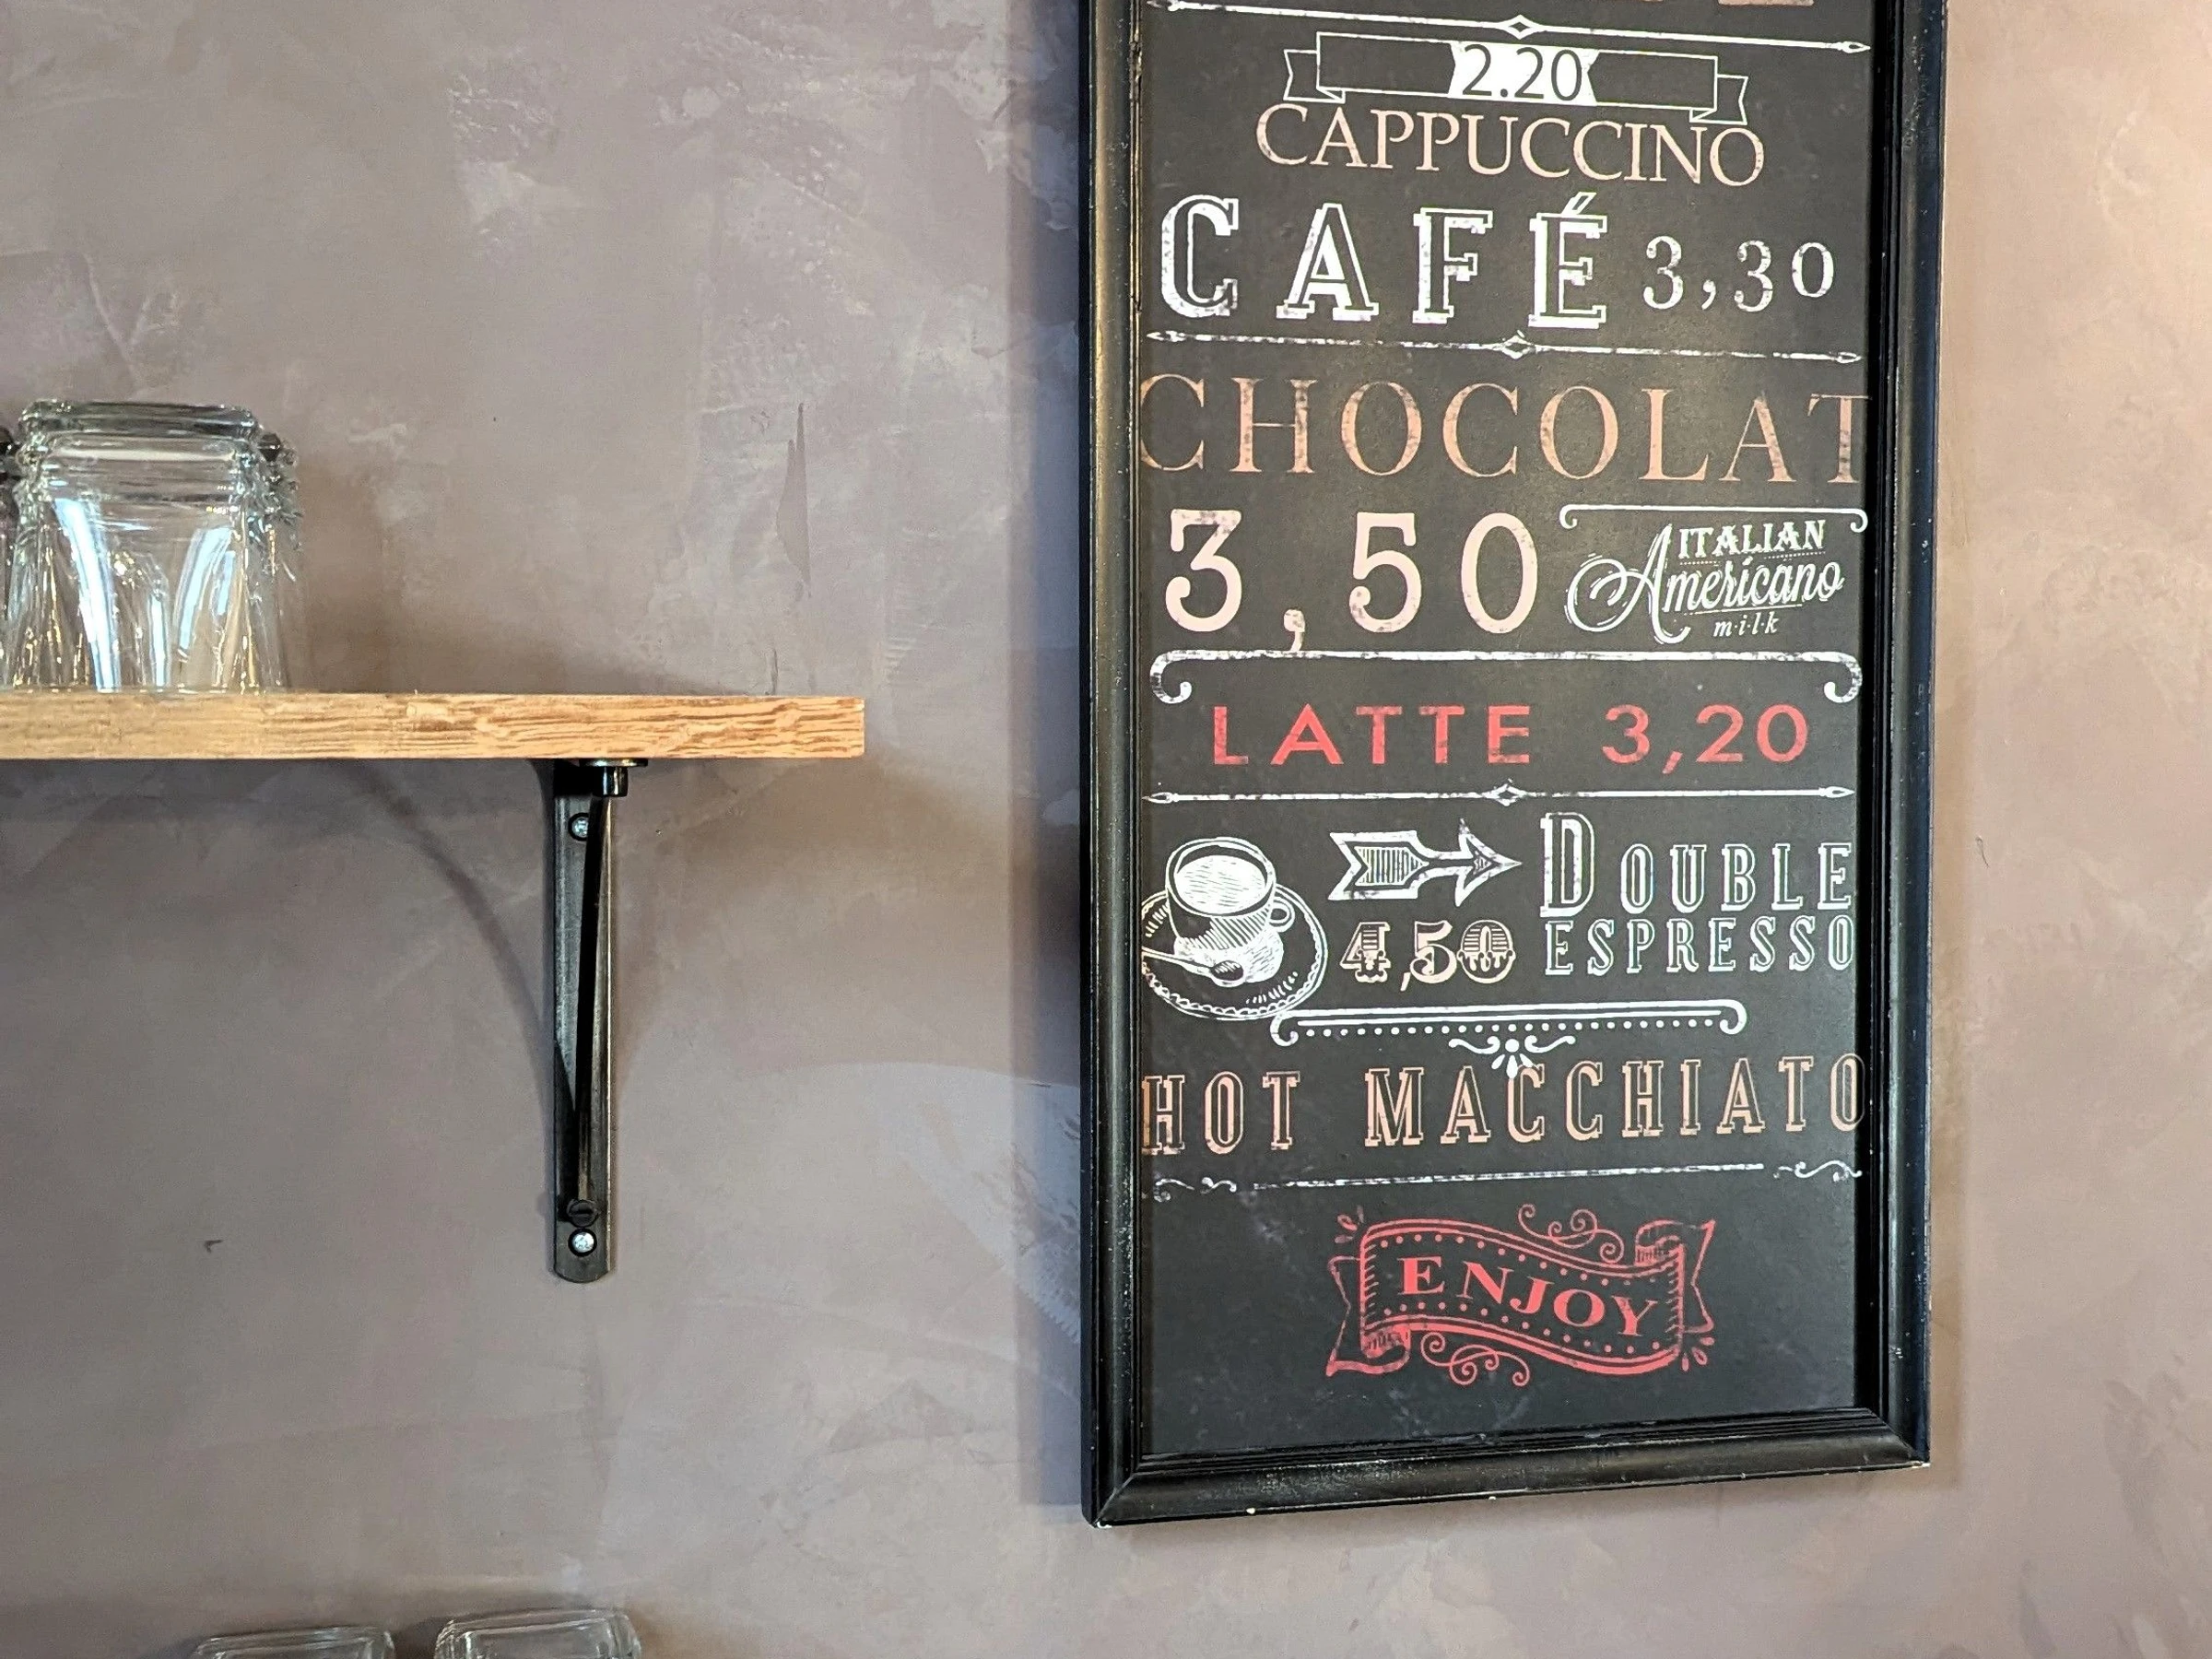 2.20
CAPPUCCINO
CAFÉ 3,30
CHOCOLAT
3,50
ITALIAN
Americano
m·i·l·k
LATTE 3,20
DOUBLE
4,50 ESPRESSO
HOT MACCHIATO
ENJOY